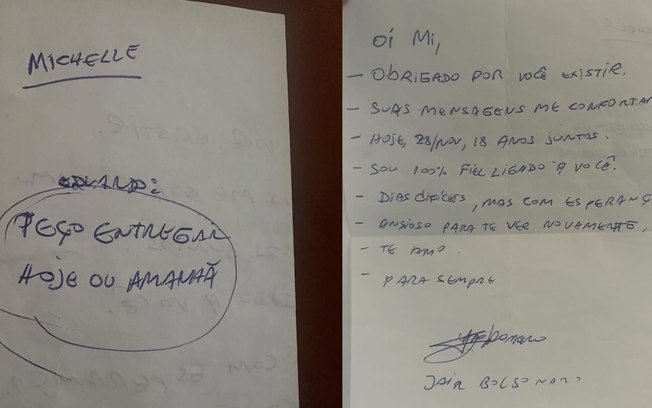 MICHELLE
PEÇO ENTREGAR
HOJE OU AMANHÃ
Oi Mi,
- OBRIGADO POR VOCÊ EXISTIR.
- SUAS MENSAGENS ME CONFORTAM
- HOJE, 28/NOV, 18 ANOS JUNTOS.
- SOU 100% FIEL LIGADO A VOCÊ.
- DIAS DIFÍCEIS, MAS COM ESPERANÇ
- ANSIOSO PARA TE VER NOVAMENTE,
- TE AMO.
- PARA SEMPRE
JAIR BOLSONARO